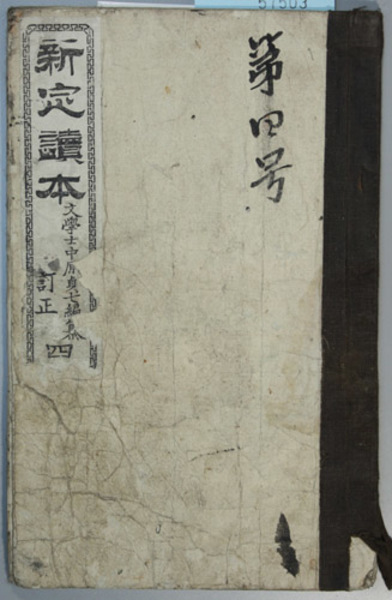 57503
第四号
新定讀本
文學士中原貞七編纂
訂正
四